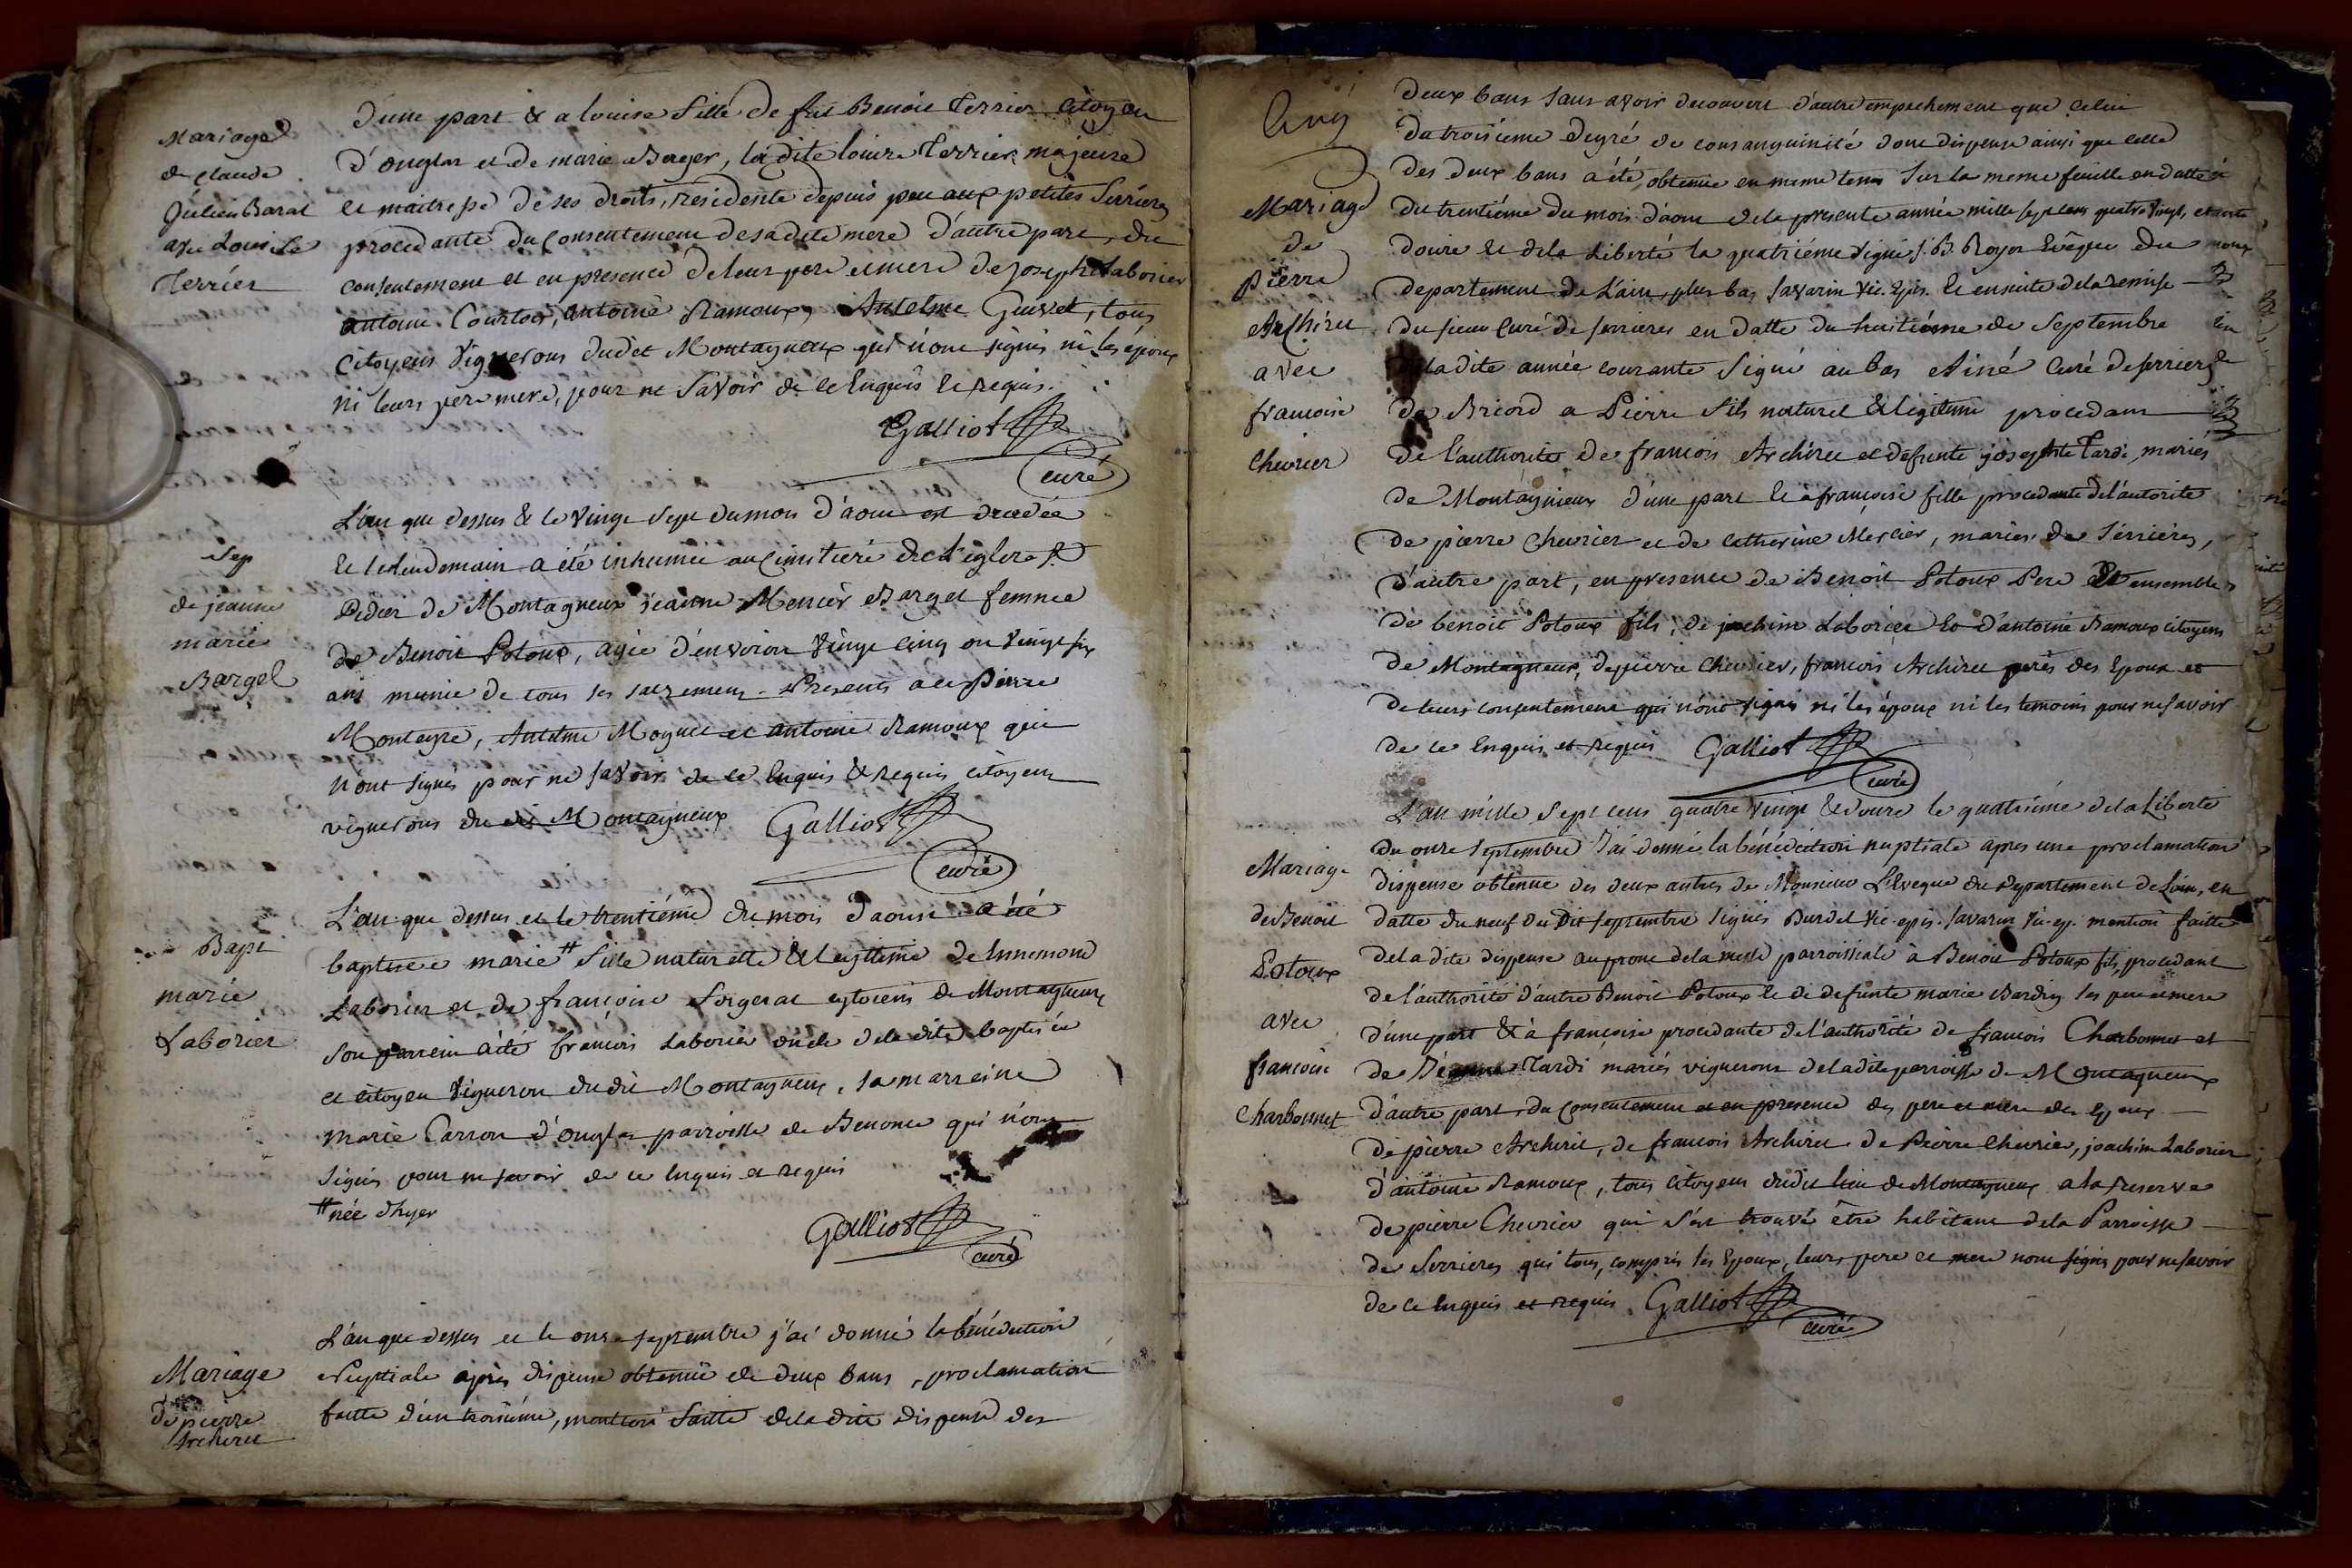 Mariage
de claude
Julien Barat
avec Louise
Terrier
d'une part & a louise fille de feu Benoit Terrier citoyen
d'onglas et de marie Berger, la dite louise Terrier majeure
et maitresse de ses droits, residente depuis peu aux petites Serrieres
procedante du consentement de sa dite mere d'autre part, du
consentement et en presence de leur pere et mere de joseph Laborier
antoine Courtois, antoine Ramoux, Antelme Guivet, tous
citoyens Vignerons dudit Montagneux qui n'ont signés ni les époux
ni leurs pere mere, pour ne Savoir de ce Enquis et requis.
Galliot
curé
Sep
de jeanne
marie
Bargel
L'an que dessus & le Vingt Sept du mois d'aout est decedée
et le lendemain a été inhumée au Cimitiere de l'eglise St
Didier de Montagneux jeanne Mercier Bargel femme
de Benoit Potoux, agée d'environ Vingt Cinq ou Vingt six
ans munie de tous ses sacremens. Presents a ce Pierre
Monteyre, Antelme Moynet et antoine Ramoux qui
n'ont signés pour ne savoir de ce Enquis & requis, citoyens
vignerons du dit Montagneux Galliot
curé
Bapt
marie
Laborier
L'an que dessus et le trentiéme du mois d'aoust a été
baptisée marie # fille naturelle & legitime de Ennemond
Laborier et de françoise Sorgerat cytoiens de Montagneux
son parrein a été francois Laborier oncle de la dite baptisée
et citoyen Vigneron du dit Montagneux, sa marreine
marie Carron d'onglas parroisse de Benonce qui n'ont
signés pour ne savoir de ce Enquis et requis
# née d'hyer
Galliot
curé
Mariage
de pierre
Archirel
L'an que dessus et le onze septembre j'ai donné la bénédiction
Nuptiale après dispense obtenüe de deux bans, proclamation
faitte d'un troisiéme, mention faitte de la dite dispense des
Cinq
Mariage
de
Pierre
Archirel
avec
françoise
Chevrier
deux bans sans avoir decouvert d'autre empechement que celui
du troisieme degré de consanguinité dont dispense ainsi que celle
des deux bans a été obtenue en meme tems sur la meme feuille en datte
du trentiéme du mois d'aout de la presente année mille sept cens quatre Vingt
douze et de la Liberté la quatriéme signé J. B. Royer Evêque du
departement de L'ain, plus bas Savarin Vic. Epis. Et ensuite de la remise
du sieur Curé de serrieres en datte du huitiéme de Septembre
de la dite année courante Signé au bas Ainé Curé de serrieres
de Briord a Pierre fils naturel & légitime procedant
de l'authorite de francois Archirel et defunte josephte Tardi mariés
de Montagnieux d'une part et à françoise fille procedante de l'autorite
de pierre Chevrier et de Catherine Mercier, mariés de Serrieres,
d'autre part, en presence de Benoit Potoux Pere Et ensemble
de benoit Potoux fils, de joachim Laborier Et d'antoine Ramoux citoyens
de Montagneux, de pierre Chevrier, francois Archirel peres des Epoux et
de leurs consentement qui n'ont signés ni les époux ni les temoins pour ne savoir
de ce Enquis et requis Galliot
curé
Mariage
de Benoit
Potoux
avec
françoise
Charbonnet
L'an mille Sept cens quatre Vingt & douze le quatriéme de la Liberté
du onze septembre J'ai donné la bénédiction nuptiale apres une proclamation
dispense obtenue des deux autres de Monsieur L'Eveque du departement de L'ain, en
datte du neuf du dit septembre signés Burdel Vic. epis. Savarin Vic. ep. mention faitte
de la dite dispense au prone de la messe parroissiale à Benoit Potoux fils, procedant
de l'authorité d'autre Benoit Potoux et de defunte marie Bardin ses pere et mere
d'une part & à françoise procedante de l'authorité de francois Charbonnet et
de Tardi mariés vignerons de la dite parroisse de Montagneux
d'autre part, du consentement et en presence des pere et mere des Epoux
de pierre Archirel, de francois Archirel de Pierre Chevrier, joachim Laborier
d'antoine Ramoux, tous citoyens du dit lieu de Montagneux a la reserve
de pierre Chevrier qui s'est trouvé être habitant de la Parroisse
de Serrieres qui tous, compris les Epoux, leurs pere et mere n'ont signés pour ne savoir
de ce Enquis et requis Galliot
curé